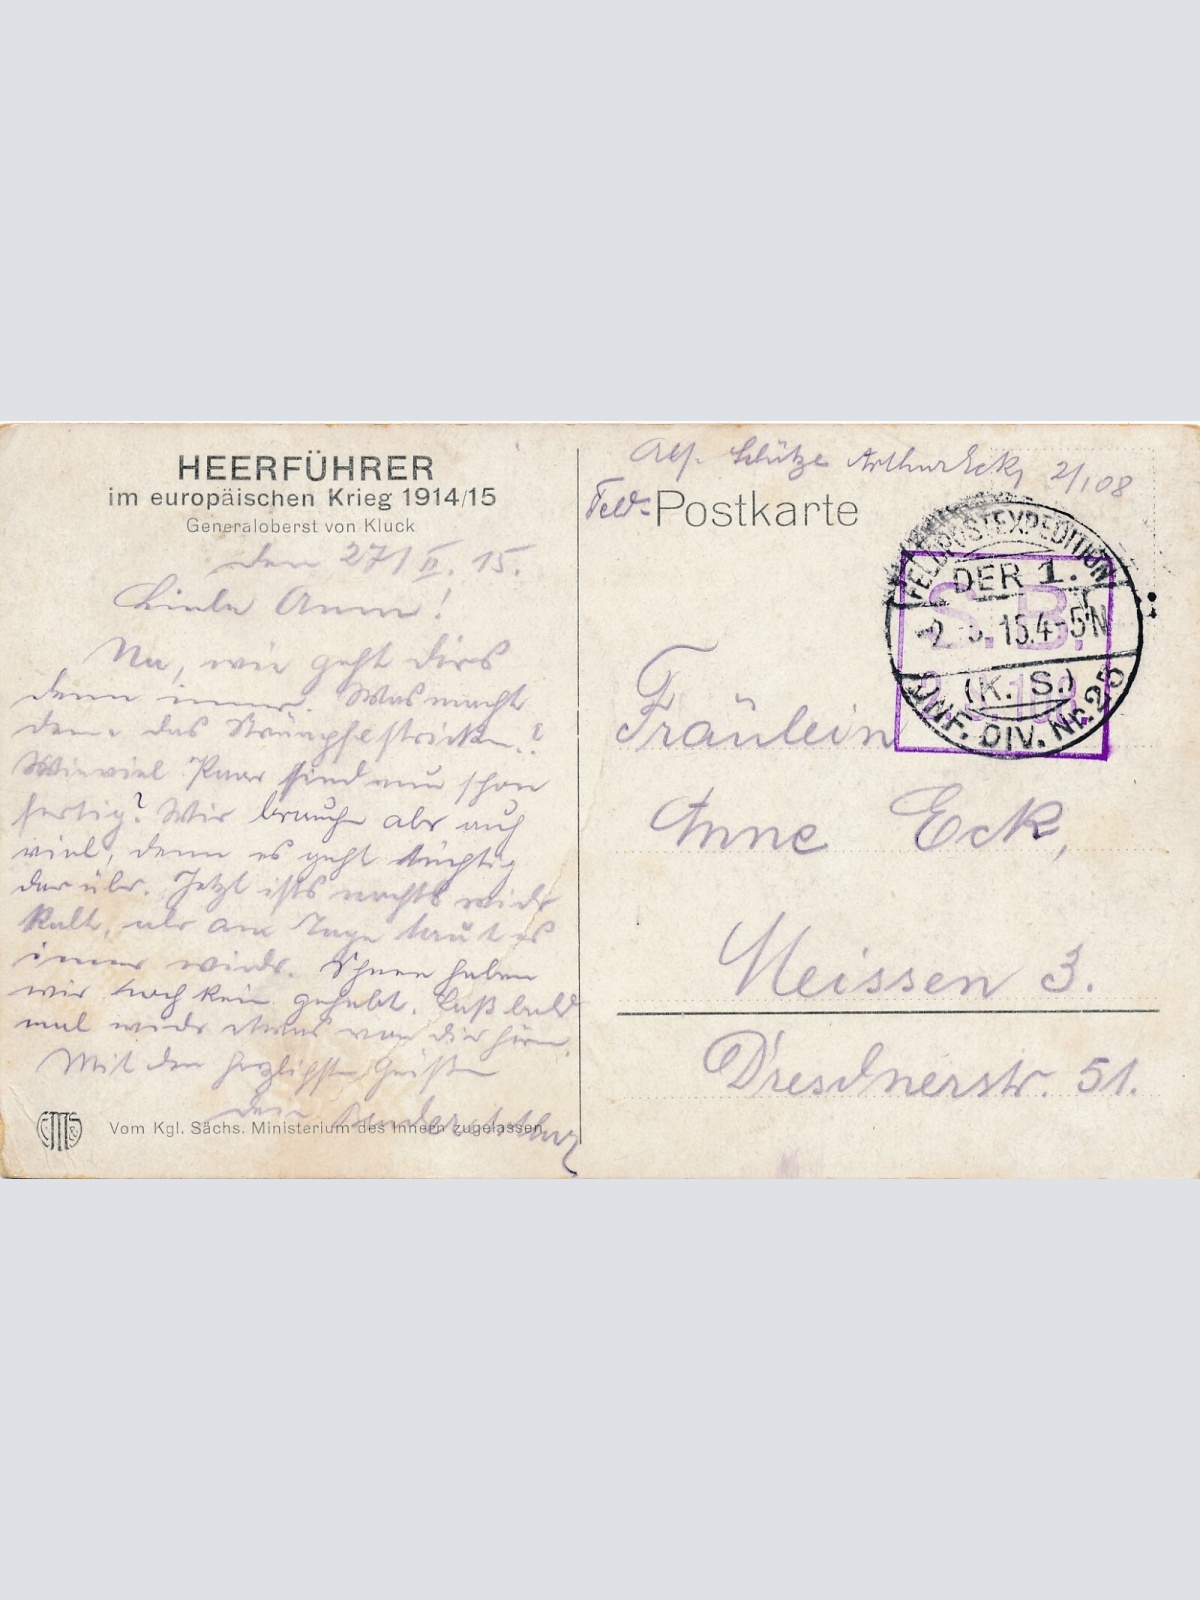 HEERFÜHRER
im europäischen Krieg 1914/15
Generaloberst von Kluck
den 27/II. 15.
Liebe Anne!
Na, wie geht Dirs
denn immer. Was macht
denn das Strümpfestricken?
Wieviel Paar sind nun schon
fertig? Wir brauchen aber auch
viel, denn es geht tüchtig
darüber. Jetzt ists nachts wieder
kalt, aber am Tage taut es
immer wieder. Schnee haben
wir noch kein gehabt. Laß bald
mal wieder etwas von dir hören.
Mit den herzlichsten Grüßen
Dein Arthur
Vom Kgl. Sächs. Ministerium des Innern zugelassen.
Abs. Schütze Arthur Eck, 2/108
Feld-Postkarte
FELDPOSTEXPEDITION
DER 1.
2. 3. 15. 4-5 N
(K. S.)
INF. DIV. Nr. 25
S. B.
Fräulein
Anne Eck,
Meissen 3.
Dresdnerstr. 51.